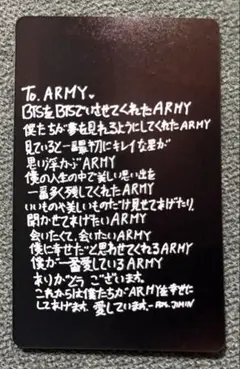 To. ARMY♥
BTSをBTSでいさせてくれたARMY
僕たちが夢を見れるようにしてくれたARMY
見ていると一番初にキレイな星が
思い浮かぶARMY
僕の人生の中で美しい思い出を
一番多く残してくれたARMY
いいものや美しいものだけ見せてあげたり、
聞かせてあげたいARMY
会いたくて、会いたいARMY
僕に幸せだと思わせてくれるARMY
僕が一番愛しているARMY
ありがとうございます。
これからは僕たちがARMYを幸せに
してあげます。愛しています。- From. JIMIN